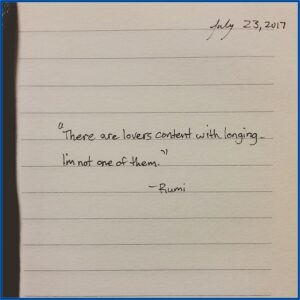 July 23, 2017
"There are lovers content with longing.
I'm not one of them."
-Rumi